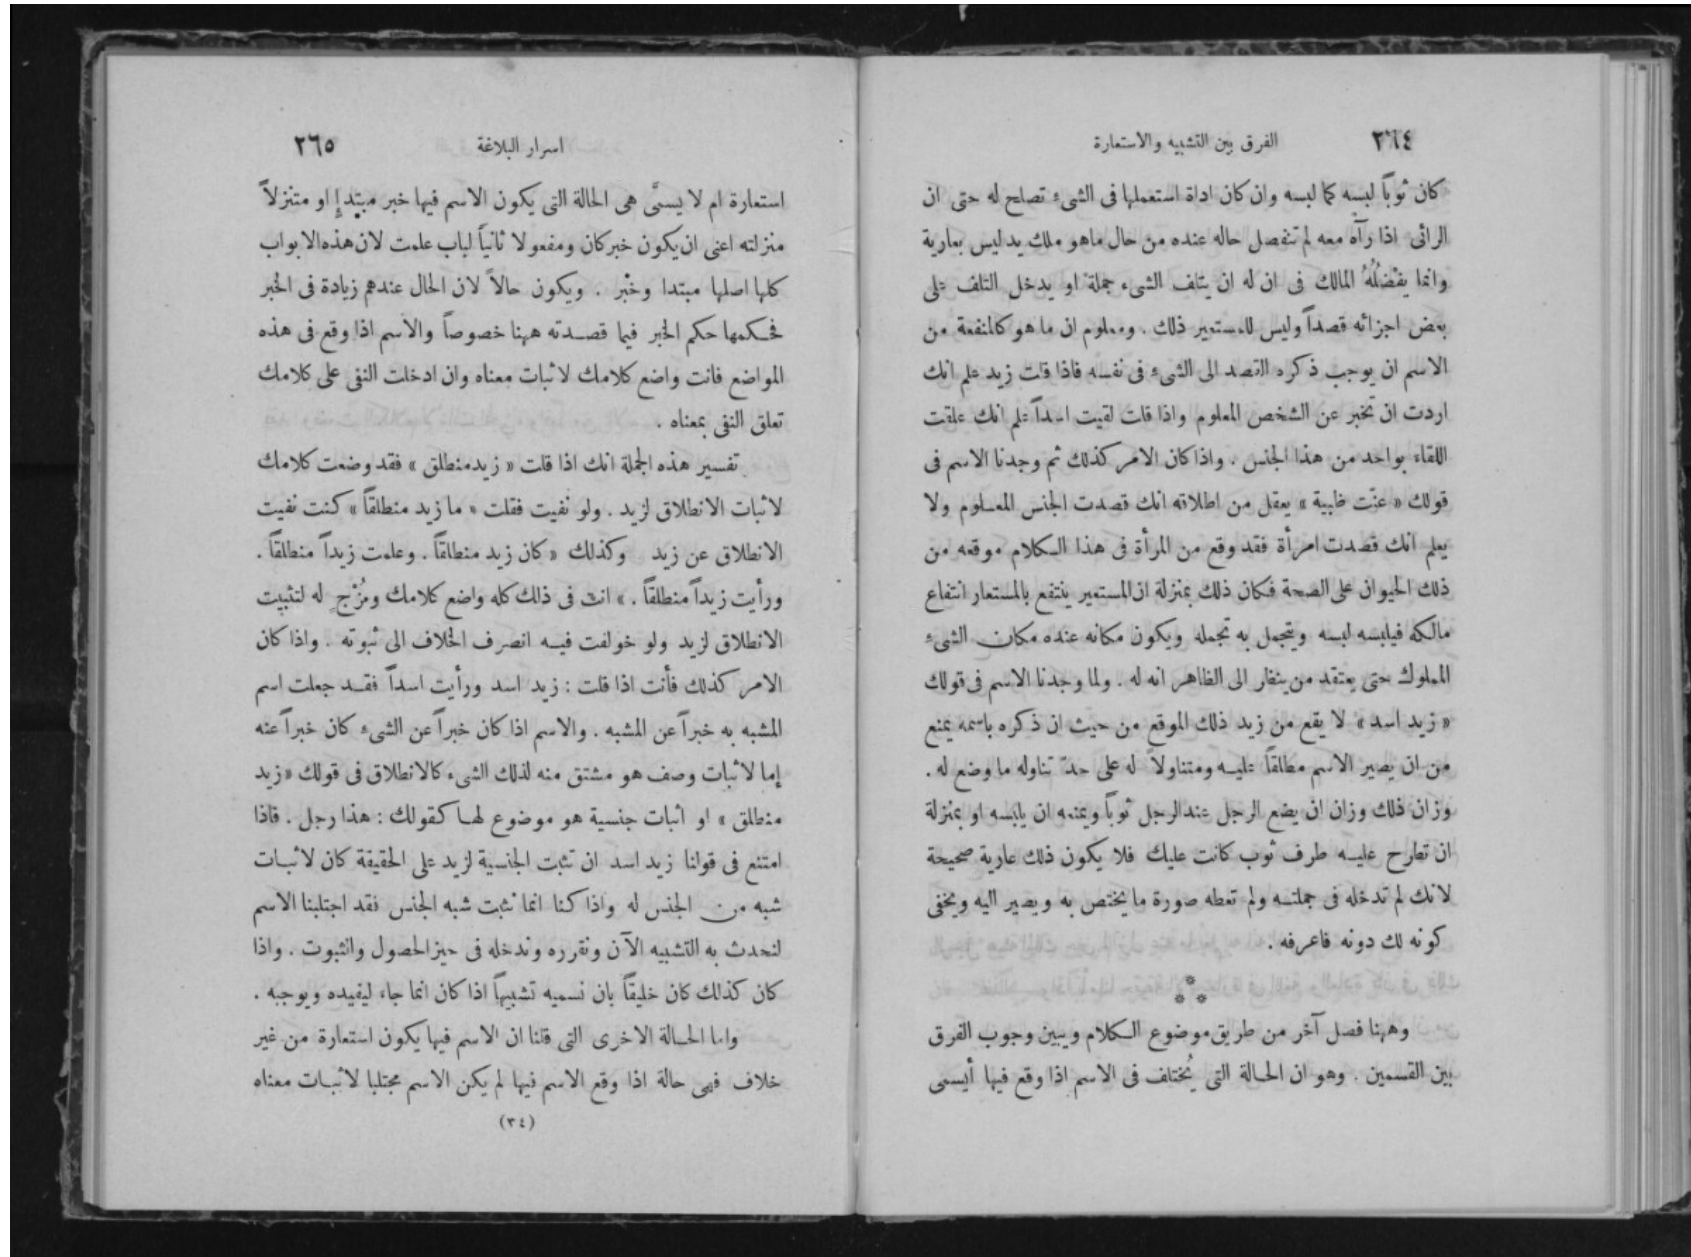 ٢٦٤
الفرق بين التشبيه والاستعارة
كان ثوباً لبسه كما لبسه وان كان اداة استعملها فى الشىء تصلح له حتى ان
الرائى اذا رآه معه لم تنفصل حاله عنده من حال ماهو ملك يد ليس بعارية
وانما يفْضُلُهُ المالك فى ان له ان يتلف الشىء جملة او يدخل التلف على
بعض اجزائه قصداً وليس للمستعير ذلك . ومعلوم ان ما هو كالمنفعة من
الاسم ان يوجب ذكره القصد الى الشىء فى نفسه فاذا قلت زيد علم انك
اردت ان تخبر عن الشخص المعلوم واذا قلت لقيت اسداً علم انك علقت
اللقاء بواحد من هذا الجنس . واذا كان الامر كذلك ثم وجدنا الاسم فى
قولك « عنّت ظبية » يعقل من اطلاقه انك قصدت الجنس المعلوم ولا
يعلم انك قصدت امرأة فقد وقع من المرأة فى هذا الكلام موقعه من
ذلك الحيوان على الصحة فكان ذلك بمنزلة ان المستعير ينتفع بالمستعار انتفاع
مالكه فيلبسه لبسه ويتجمل به تجمله ويكون مكانه عنده مكان الشىء
المملوك حتى يعتقد من ينظر الى الظاهر انه له . ولما وجدنا الاسم فى قولك
« زيد اسد » لا يقع من زيد ذلك الموقع من حيث ان ذكره باسمه يمنع
من ان يصير الاسم مطلقاً عليه ومتناولاً له على حدّ تناوله ما وضع له .
وزان ذلك وزان ان يضع الرجل عند الرجل ثوباً ويمنعه ان يلبسه او بمنزلة
ان تطرح عليه طرف ثوب كانت عليك فلا يكون ذلك عارية صحيحة
لانك لم تدخله فى جملته ولم تعطه صورة ما يختص به ويصير اليه ويخفى
كونه لك دونه فاعرفه .
* * *
وههنا فصل آخر من طريق موضوع الكلام ويبين وجوب الفرق
بين القسمين . وهو ان الحالة التى يُختلف فى الاسم اذا وقع فيها أيسمى
٢٦٥
اسرار البلاغة
استعارة ام لا يسمَّى هى الحالة التى يكون الاسم فيها خبر مبتدإ او متنزلاً
منزلته اعنى ان يكون خبر كان ومفعولا ثانياً لباب علمت لان هذه الابواب
كلها اصلها مبتدا وخبر . ويكون حالاً لان الحال عندهم زيادة فى الخبر
فحكمها حكم الخبر فيما قصدته ههنا خصوصاً والاسم اذا وقع فى هذه
المواضع فانت واضع كلامك لاثبات معناه وان ادخلت النفى على كلامك
تعلق النفى بمعناه .
تفسير هذه الجملة انك اذا قلت « زيد منطلق » فقد وضعت كلامك
لاثبات الانطلاق لزيد . ولو نفيت فقلت « ما زيد منطلقاً » كنت نفيت
الانطلاق عن زيد وكذلك « كان زيد منطلقاً . وعلمت زيداً منطلقاً .
ورأيت زيداً منطلقاً . » انت فى ذلك كله واضع كلامك ومُزْجٍ له لتثبيت
الانطلاق لزيد ولو خولفت فيه انصرف الخلاف الى ثبوته . واذا كان
الامر كذلك فأنت اذا قلت : زيد اسد ورأيت اسداً فقد جعلت اسم
المشبه به خبراً عن المشبه . والاسم اذا كان خبراً عن الشىء كان خبراً عنه
إما لاثبات وصف هو مشتق منه لذلك الشىء كالانطلاق فى قولك « زيد
منطلق » او اثبات جنسية هو موضوع لها كقولك : هذا رجل . فاذا
امتنع فى قولنا زيد اسد ان تثبت الجنسية لزيد على الحقيقة كان لاثبات
شبه من الجنس له واذا كنا انما نثبت شبه الجنس فقد اجتلبنا الاسم
لنحدث به التشبيه الآن ونقرره وندخله فى حيز الحصول والثبوت . واذا
كان كذلك كان خليقاً بان نسميه تشبيهاً اذا كان انما جاء ليفيده ويوجبه .
واما الحالة الاخرى التى قلنا ان الاسم فيها يكون استعارة من غير
خلاف فهى حالة اذا وقع الاسم فيها لم يكن الاسم مجتلبا لاثبات معناه
(٣٤)